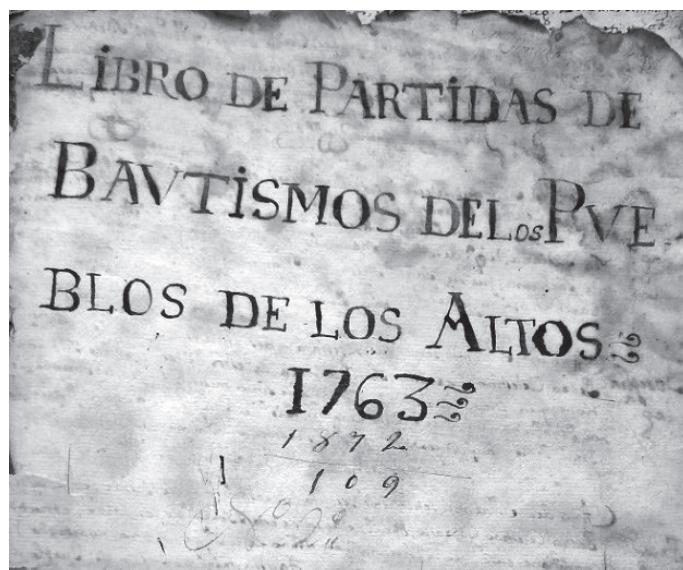 LIBRO DE PARTIDAS DE
BAVTISMOS DELOS PVE
BLOS DE LOS ALTOS
1763
1872
109